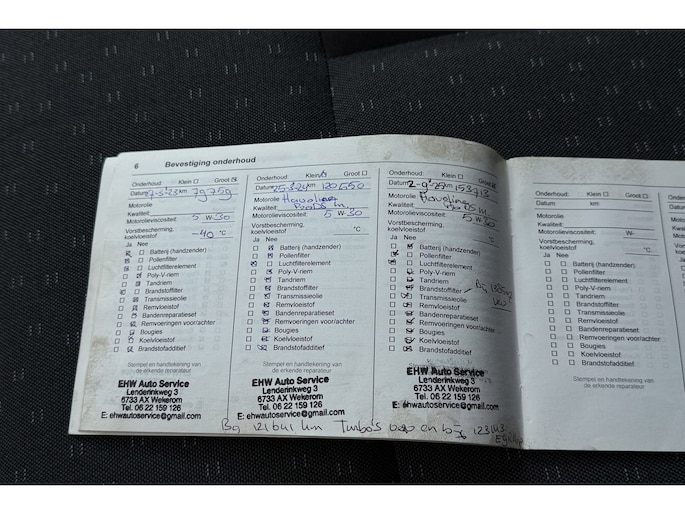 6 Bevestiging onderhoud
Onderhoud: Klein Groot
Datum 7-3-23 km 79759
Motorolie
Kwaliteit:
Motorolieviscositeit: 5 W-30
Vorstbescherming, koelvloeistof -40 °C
Ja Nee
Batterij (handzender)
Pollenfilter
Luchtfilterelement
Poly-V-riem
Tandriem
Brandstoffilter
Transmissieolie
Remvloeistof
Bandenreparatieset
Remvoeringen voor/achter
Bougies
Koelvloeistof
Brandstofadditief
Stempel en handtekening van
de erkende reparateur
EHW Auto Service
Lenderinkweg 3
6733 AX Wekerom
Tel. 06 22 159 126
E: ehwautoservice@gmail.com
Onderhoud: Klein Groot
Datum 25-3-24 km 120550
Motorolie Havoline
Kwaliteit:
Motorolieviscositeit: 5 W-30
Vorstbescherming,
koelvloeistof °C
Ja Nee
Batterij (handzender)
Pollenfilter
Luchtfilterelement
Poly-V-riem
Tandriem
Brandstoffilter
Transmissieolie
Remvloeistof
Bandenreparatieset
Remvoeringen voor/achter
Bougies
Koelvloeistof
Brandstofadditief
Stempel en handtekening van
de erkende reparateur
EHW Auto Service
Lenderinkweg 3
6733 AX Wekerom
Tel. 06 22 159 126
E: ehwautoservice@gmail.com
Onderhoud: Klein Groot
Datum km
Motorolie Havoline
Kwaliteit:
Motorolieviscositeit: 5 W-30
Vorstbescherming,
koelvloeistof °C
Ja Nee
Batterij (handzender)
Pollenfilter
Luchtfilterelement
Poly-V-riem
Tandriem
Brandstoffilter
Transmissieolie
Remvloeistof
Bandenreparatieset
Remvoeringen voor/achter
Bougies
Koelvloeistof
Brandstofadditief
EHW Auto Service
Lenderinkweg 3
6733 AX Wekerom
Tel. 06 22 159 126
E: ehwautoservice@gmail.com
Bij 121641 km Turbo's
Onderhoud: Klein Groot
Datum km
Motorolie
Kwaliteit:
Motorolieviscositeit: W-
Vorstbescherming,
koelvloeistof °C
Ja Nee
Batterij (handzender)
Pollenfilter
Luchtfilterelement
Poly-V-riem
Tandriem
Brandstoffilter
Transmissieolie
Remvloeistof
Bandenreparatieset
Remvoeringen voor/achter
Bougies
Koelvloeistof
Brandstofadditief
Stempel en handtekening van
de erkende reparateur